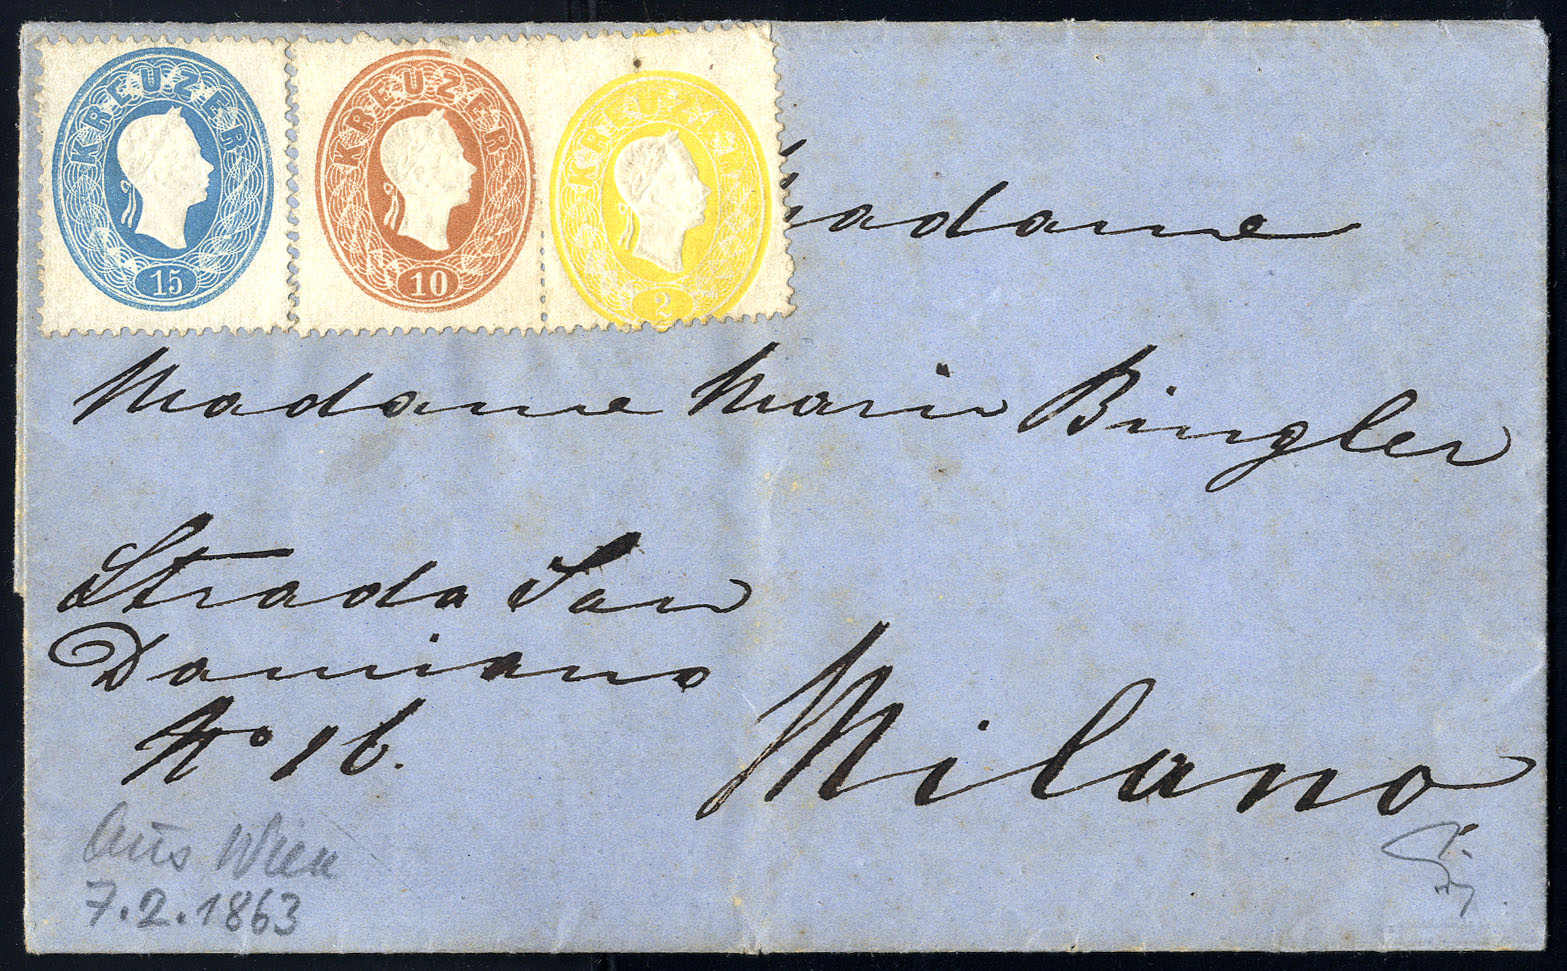 KREUZER 15
KREUZER 10
KREUZER 2
Madame
Madame Marie Bingler
Strada San
Damiano
No 16.
Milano
Aus Wien
7.2.1863